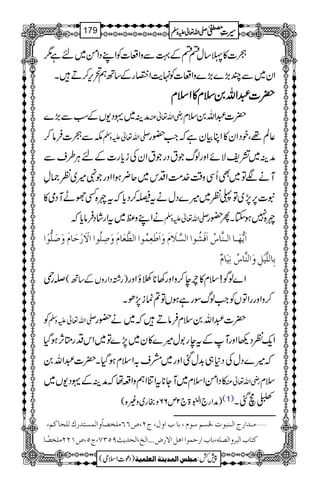 سیرتِ مصطفیٰ صلی اللہ تعالیٰ علیہ وسلم 179
ہجرت کا پہلا سال قسم قسم کے بہت سے واقعات کو اپنے دامن میں لئے ہے مگر
ان میں سے چند بڑے بڑے واقعات کو نہایت اختصار کے ساتھ ہم تحریر کرتے ہیں۔
حضرت عبداللہ بن سلام کا اسلام
حضرت عبداللہ بن سلام رضی اللہ تعالیٰ عنہ مدینہ میں یہودیوں کے سب سے بڑے
عالم تھے، خود ان کا اپنا بیان ہے کہ جب حضور صلی اللہ تعالیٰ علیہ وسلم مکہ سے ہجرت فرما کر
مدینہ میں تشریف لائے اور لوگ جوق در جوق ان کی زیارت کے لئے ہر طرف سے
آنے لگے تو میں بھی اُسی وقت خدمتِ اقدس میں حاضر ہوا اور جونہی میری نظر جمالِ
نبوت پر پڑی تو پہلی نظر میں میرے دل نے یہ فیصلہ کر دیا کہ یہ چہرہ کسی جھوٹے آدمی کا
چہرہ نہیں ہو سکتا۔ پھر حضور صلی اللہ تعالیٰ علیہ وسلم نے اپنے وعظ میں یہ ارشاد فرمایا کہ
اَیُّھَا النَّاسُ اَفْشُوا السَّلَامَ وَاَطْعِمُوا الطَّعَامَ وَصِلُوا الْاَرْحَامَ وَصَلُّوْا
بِاللَّیْلِ وَالنَّاسُ نِیَامٌ
اے لوگو! سلام کا چرچا کرو اور کھانا کھلاؤ اور (رشتہ داروں کے ساتھ) صلہ رحمی
کرو اور راتوں کو جب لوگ سو رہے ہوں تو تم نماز پڑھو۔
حضرت عبداللہ بن سلام فرماتے ہیں کہ میں نے حضور صلی اللہ تعالیٰ علیہ وسلم کو
ایک نظر دیکھا اور آپ کے یہ چار بول میرے کان میں پڑے تو میں اس قدر متاثر ہو گیا
کہ میرے دل کی دنیا ہی بدل گئی اور میں مشرف بہ اسلام ہو گیا۔ حضرت عبداللہ بن
سلام رضی اللہ تعالیٰ عنہ کا دامنِ اسلام میں آ جانا یہ اتنا اہم واقعہ تھا کہ مدینہ کے یہودیوں میں
کھلبلی مچ گئی۔ (1) (مدارج النبوۃ ج۲ ص۶۶ و بخاری وغیرہ)
1……مدارج النبوت ، قسم سوم ، باب اول، ج۲، ص۶۶ ملخصاً والمستدرک للحاکم،
کتاب البروالصلۃ، باب ارحموا اھل الارض...الخ، الحدیث:۷۳۵۹، ج۵، ص۲۲۱ ملخصًا
پیش کش: مجلس المدینۃ العلمیۃ (دعوتِ اسلامی)